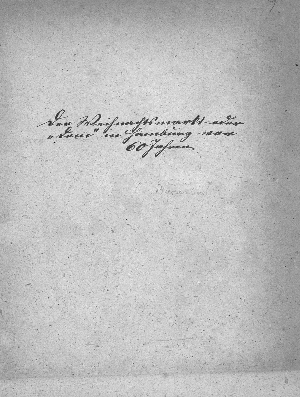 Der Weihnachtsmarkt oder
„Dom“ in Hamburg vor
60 Jahren.